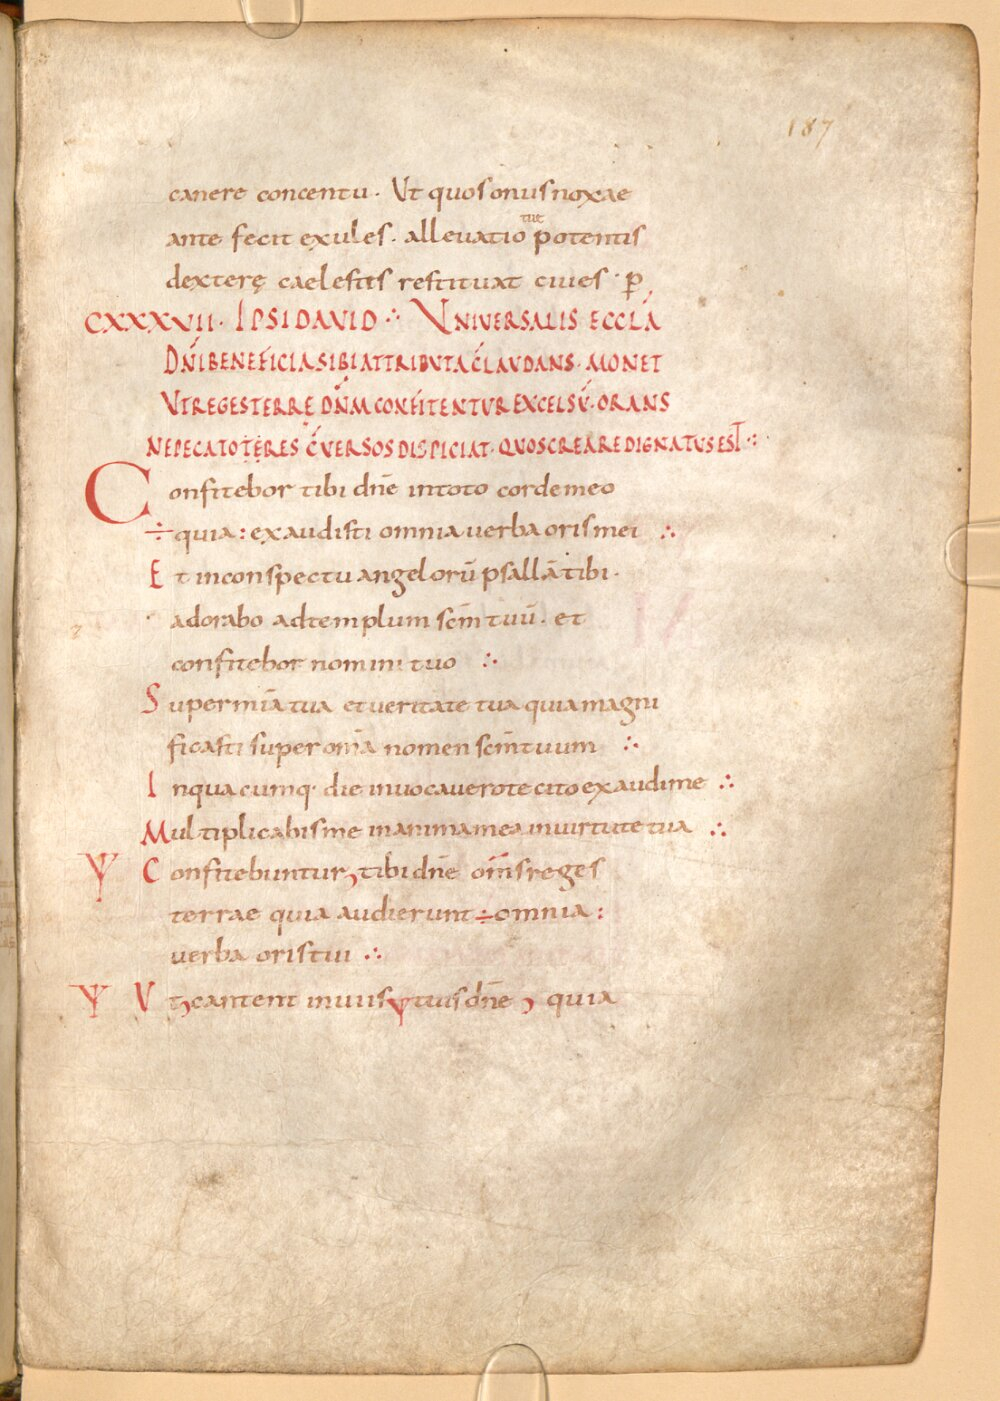 187
canere concentu · Ut quos onus noxae
tuę
ante fecit exules · allevatio potentis
dexterę caelestis restituat cives · p̄
CXXXVII · IPSI DAVID ∴ VNIVERSALIS ECCLA
DNI BENEFICIA SIBI ATTRIBUTA C̄LAVDANS · MONET
VT REGES TERRE DNM CONFITENTVR EXCELSV̄ · ORANS
NE PECATOTERES C̄VERSOS DISPICIAT · QUOS CREARE DIGNATVS EST ∴
Confitebor tibi dn̄e in toto corde meo
÷ quia : exaudisti omnia verba oris mei ∴
Et in conspectu angelorū psallā tibi ·
adorabo ad templum sc̄m tuū · et
confitebor nomini tuo ∴
Super mīa tua et veritate tua quia magni
ficasti super om̄a nomen sc̄m tuum ∴
In quacumq· die invocavero te cito exaudi me ∴
Multiplicabis me in anima mea in virtute tua ∴
Ψ Confitebuntur, tibi dn̄e om̄s reges
terrae quia audierunt ÷ omnia :
verba oris tui ∴
Ψ Vt, cantent in viis Ψ tuis dn̄e , quia